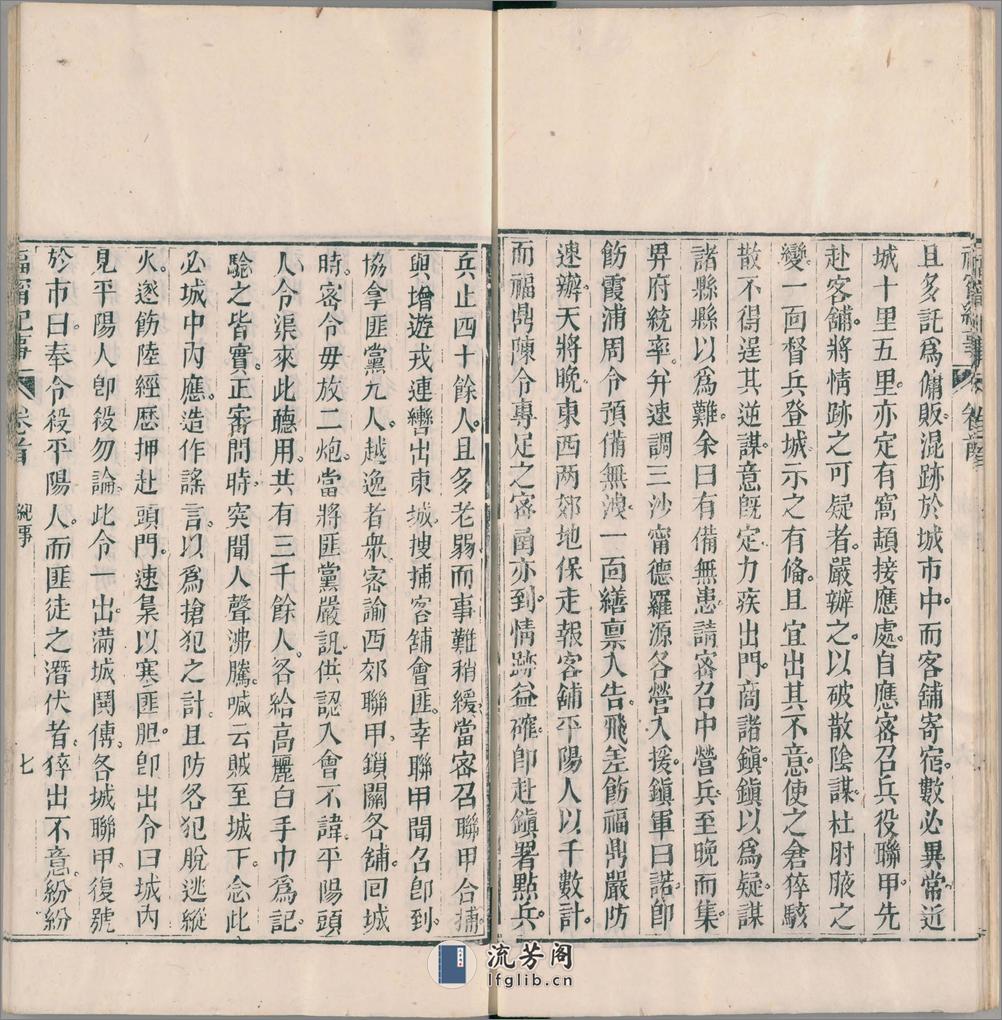 且多託爲傭販混跡於城市中而客舖寄宿數必異常近
城十里五里亦定有窩頓接應處自應密召兵役聯甲先
赴客舖將情跡之可疑者嚴辦之以破散陰謀杜肘腋之
變一面督兵登城示之有偹且宜出其不意使之倉猝駭
散不得逞其逆謀意旣定力疾出門商諸鎭鎭以爲疑謀
諸縣縣以爲難余曰有備無患請密召中營兵至晚而集
畀府統率另速調三沙甯德羅源各營入援鎭軍曰諾卽
飭霞浦周令預備無洩一面繕禀入告飛差飭福鼎嚴防
速辦天將晚東西两郊地保走報客舖平陽人以千數計
而福鼎陳令専足之密函亦到情跡益確卽赴鎭署點兵
兵止四十餘人且多老弱而事難稍緩當密召聯甲合捕
與增遊戎連轡出東城搜捕客舖會匪幸聯甲聞召卽到
協拿匪黨九人越逸者衆密諭西郊聯甲鎖關各舖回城
時密令毋放二炮當將匪黨嚴訊供認入會不諱平陽頭
人令渠來此聽用共有三千餘人各給高麗白手巾爲記
騐之皆實正審問時突聞人聲沸騰喊云賊至城下念此
必城中內應造作謠言以爲搶犯之計且防各犯脫逃縱
火遂飭陸經歷押赴頭門速梟以寒匪胆卽出令曰城內
見平陽人卽殺勿論此令一出滿城鬨傳各城聯甲復號
於市曰奉令殺平陽人而匪徒之潛伏者猝出不意紛紛
福甯紀事
卷首
紀事
七
流芳阁
lfglib.cn